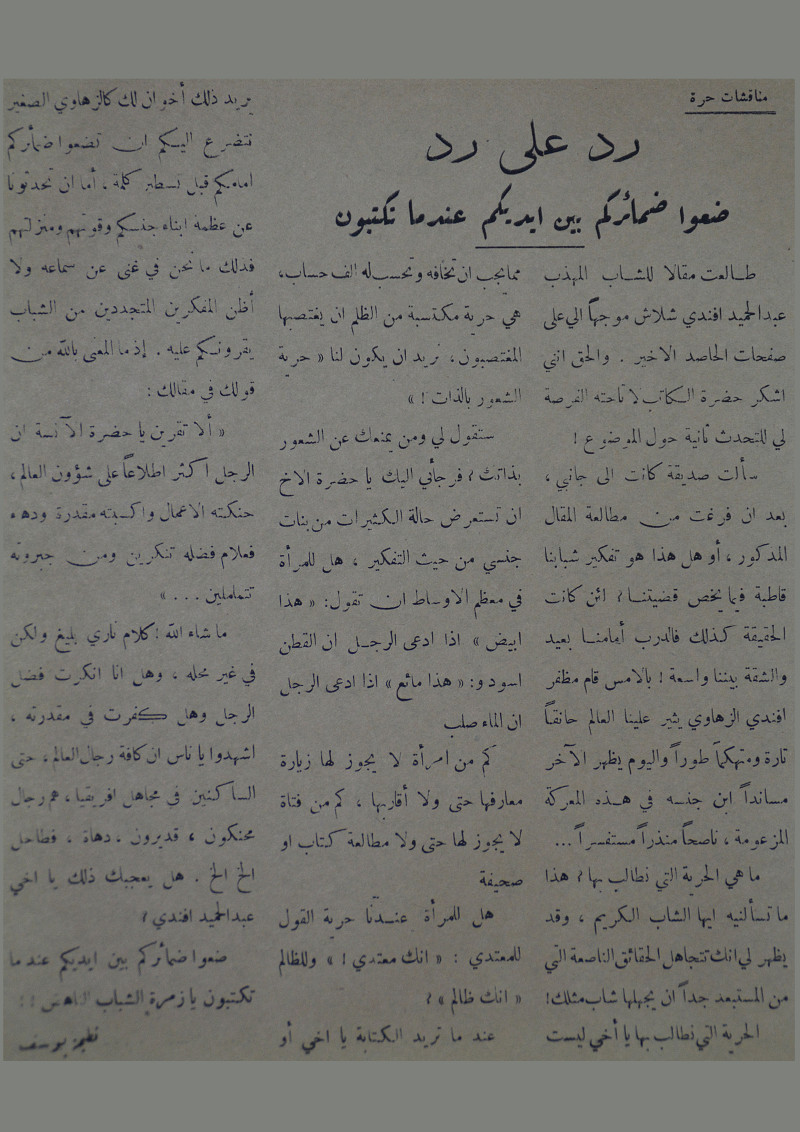 منافشات حرة
رد على رد
ضعوا ضمائركم بين ايديكم عندما تكتبون
طالعت مقالا للشاب المهذب
عبدالحميد افندي شلاش موجهاً الي على
صفحات الحاصد الاخير . والحق انني
اشكر حضرة الكاتب لاتاحته الفرصة
لي للتحدث ثانية حول الموضوع !
سألت صديقة كانت الى جانبي ،
بعد ان فرغت من مطالعة المقال
المذكور ، أو هل هذا هو تفكير شبابنا
قاطبة فيما يخص قضيتنا ؟ ائن كانت
الحقيقة كذلك فالدرب أمامنا بعيد
والشقة بيننا واسعة ! بالامس قام مظفر
افندي الزهاوي يثير علينا العالم حانقاً
تارة ومتهكماً طوراً واليوم يظهر الآخر
مسانداً ابن جنسه في هذه المعركة
المزعومة ، ناصحاً منذراً مستفسراً ...
ما هي الحرية التي نطالب بها ؟ هذا
ما تسألنيه ايها الشاب الكريم ، وقد
يظهر لي انك تتجاهل الحقائق الناصعة التي
من المستبعد جداً ان يجهلها شاب مثلك !
الحرية التي نطالب بها يا أخي ليست
مما يجب ان تخافه وتحسب له الف حساب ،
هي حرية مكتسبة من الظلم ان يغتصبها
المغتصبون ، نريد ان يكون لنا « حرية
الشعور بالذات ! »
ستقول لي ومن يمنعك عن الشعور
بذاتك ؟ فرجأني اليك يا حضرة الاخ
ان تستعرض حالة الكثيرات من بنات
جنسي من حيث التفكير ، هل للمرأة
في معظم الاوساط ان تقول : « هذا
ابيض » اذا ادعى الرجل ان القطن
اسود و : « هذا مائع » اذا ادعى الرجل
ان الماء صلب
كم من امرأة لا يجوز لها زيارة
معارفها حتى ولا أقاربها ، كم من فتاة
لا يجوز لها حتى ولا مطالعة كتاب او
صحيفة
هل للمرأة عندنا حرية القول
للمعتدي : « انك معتدي ! » وللظالم
« انك ظالم » ؟
عند ما تريد الكتابة يا اخي أو
يريد ذلك أخوان لك كالزهاوي الصغير
نتضرع اليكم ان تضعوا ضمائركم
امامكم قبل تسطير كلمة ، أما ان تحدثونا
عن عظمة ابناء جنسكم وقوتهم ومنزلتهم
فذلك ما نحن في غنى عن سماعه ولا
أظن المفكرين المتجددين من الشباب
يقرونكم عليه . إذ ما المعنى بالله من
قولك في مقالك :
« ألا تقرين يا حضرة الآنسة ان
الرجل اكثر اطلاعاً على شؤون العالم ،
حنكته الاعمال واكسبته مقدرة ودهاء
فعلام فضله تنكرين ومن جبروته
تتململين ... »
ما شاء الله ! كلام ناري بليغ ولكن
في غير محله ، وهل انا انكرت فضل
الرجل وهل كفرت في مقدرته ،
اشهدوا يا ناس ان كافة رجال العالم ، حتى
الساكنين في مجاهل افريقيا ، هم رجال
محنكون ، قديرون . دهاة ، فطاحل
الخ الخ . هل يعجبك ذلك يا اخي
عبدالحميد افندي ؟
ضعوا ضمائركم بين ايديكم عند ما
تكتبون يا زمرة الشباب الناهض ! !
نظيمة يوسف